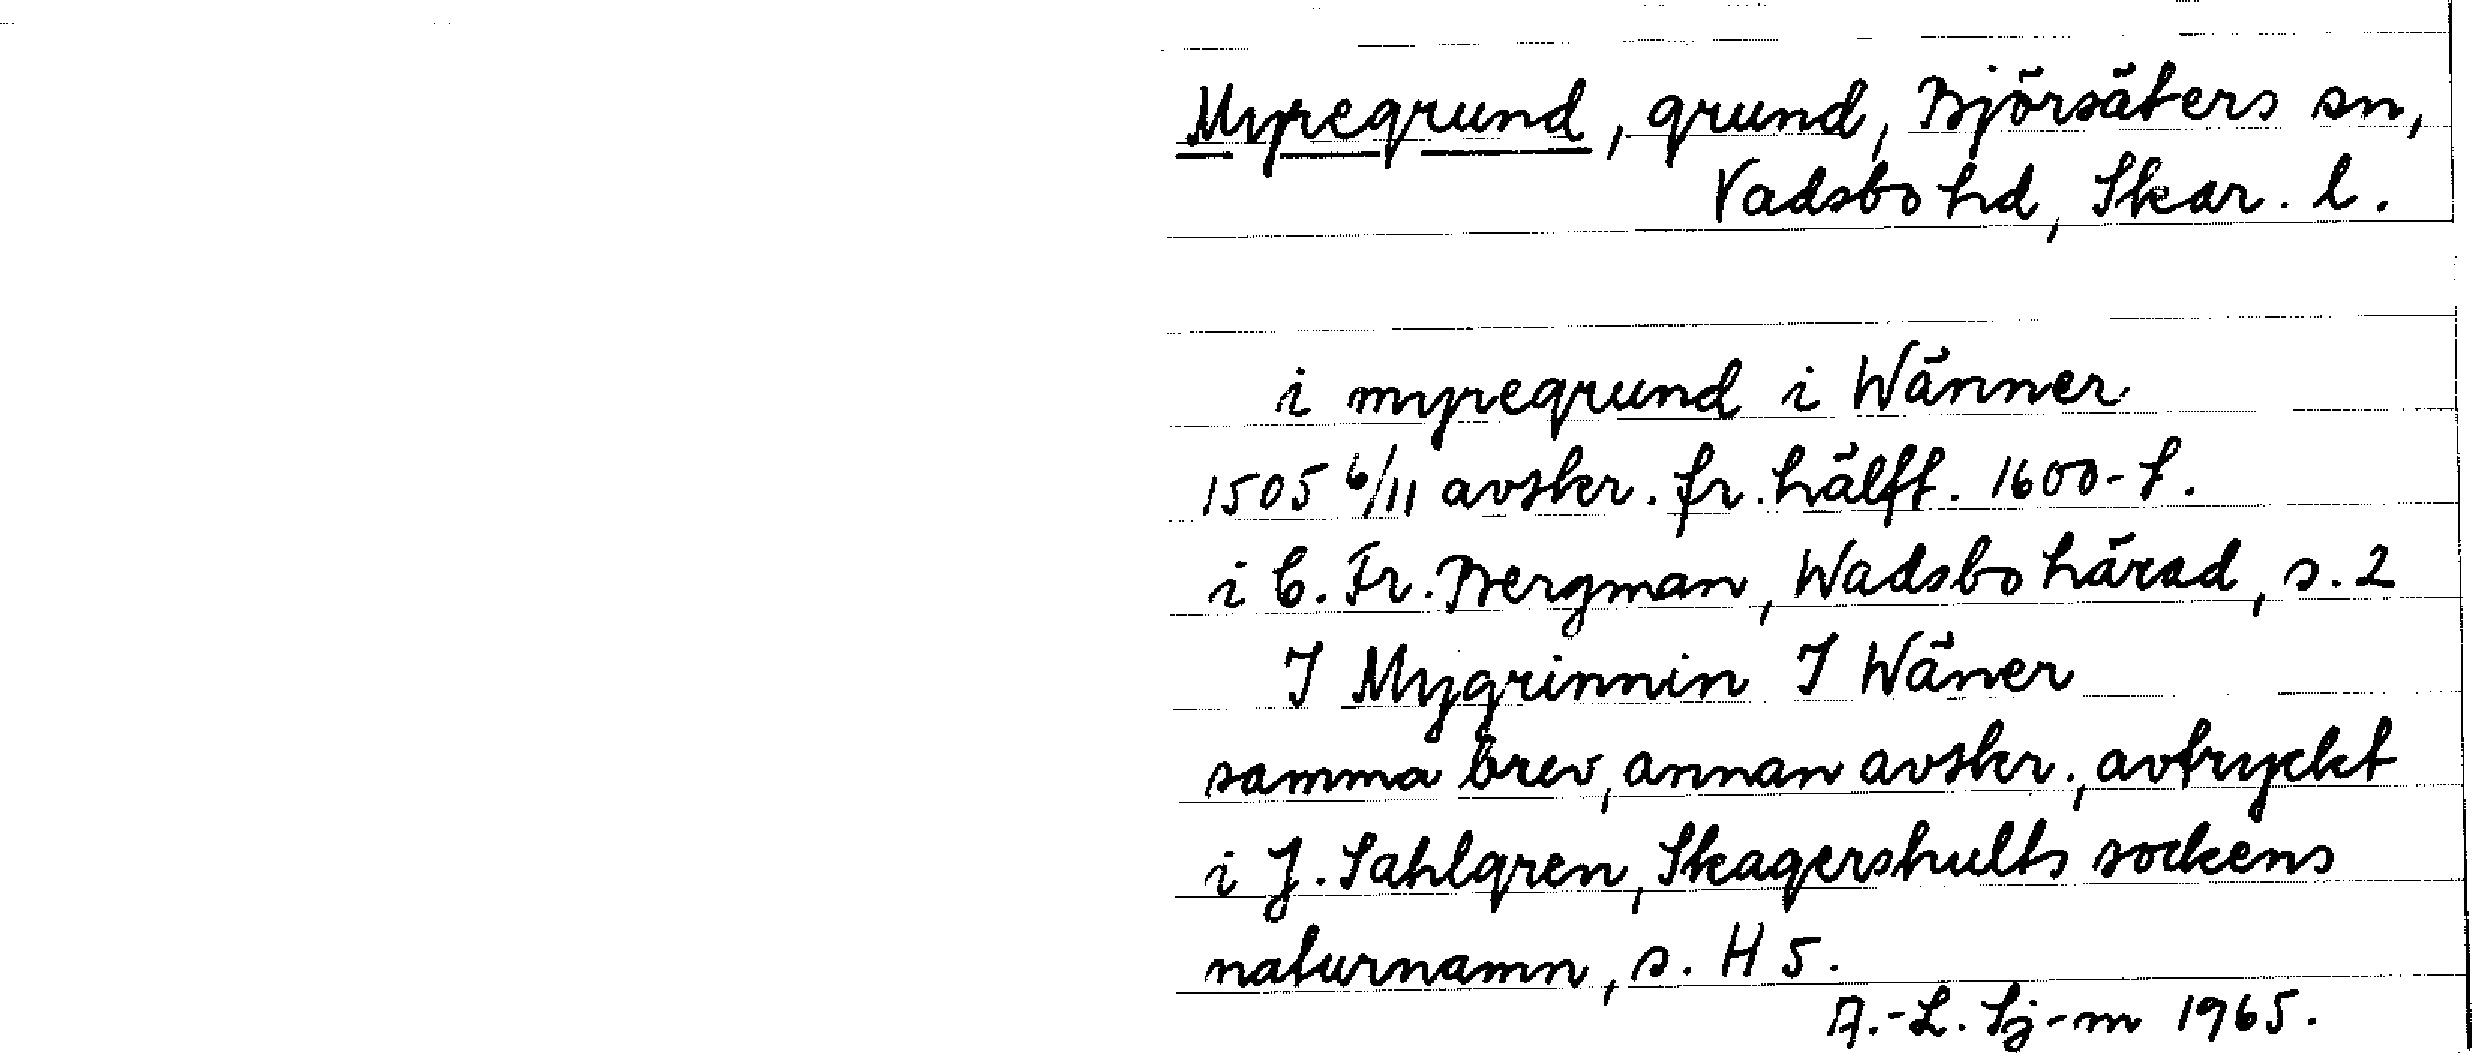 Myregrund, grund, Björsäters sn,
Vadsbo hd, Skar. l.
i myregrund i Wänner
1505 6/11 avskr. fr. hälft. 1600-t.
i C. Fr. Bergman, Wadsbo härad, s. 2
I Mygrinnin I Wäner
samma brev, annan avskr., avtryckt
i J. Sahlgren, Skagershults sockens
naturnamn, s. H 5.
A.-L. Sj-m 1965.